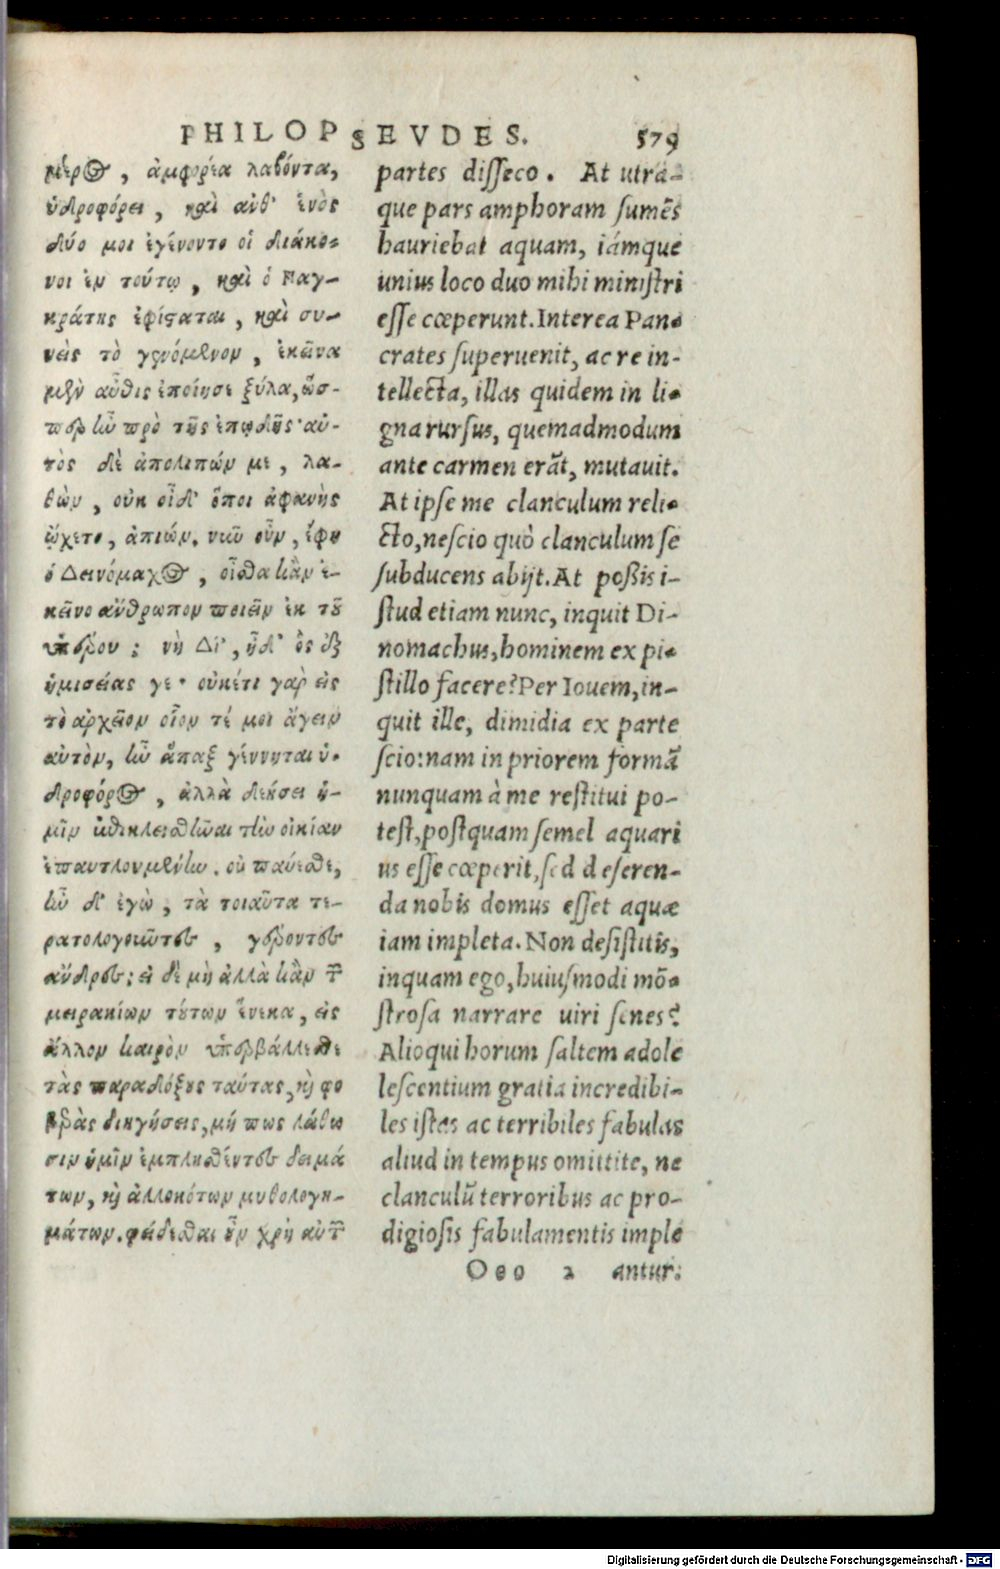 PHILOPSEVDES. 579
μέρος, ἀμφορέα λαβόντα,
ὑδροφόρει, καὶ ἀνθ' ἑνὸς
δύο μοι ἐγένοντο οἱ διάκο-
νοι ἐν τούτῳ, καὶ ὁ Παγ-
κράτης ἐφίσταται, καὶ συ-
νεὶς τὸ γενόμενον, ἐκεῖνα
μὲν αὖθις ἐποίησε ξύλα, ὥσ-
περ ἦν πρὸ τῆς ἐπῳδῆς· αὐ-
τὸς δὲ ἀπολιπών με, λα-
θὼν, οὐκ οἶδ' ὅποι ἀφανὴς
ᾤχετο, ἀπιών. νῦν οὖν, ἔφη
ὁ Δεινόμαχος, οἶσθα κἂν ἐ-
κεῖνο ἄνθρωπον ποιεῖν ἐκ τοῦ
ὑπέρου; νὴ Δί', ἦδ' ὃς ἐξ
ἡμισείας γε· οὐκέτι γὰρ εἰς
τὸ ἀρχεῖον οἷον τέ μοι ἄγειν
αὐτὸν, ἢν ἅπαξ γέννηται ὑ-
δροφόρος, ἀλλὰ δεήσει ἡ-
μῖν ἐπικλεισθῆναι τὴν οἰκίαν
ἐπαντλουμένην. οὐ παύεσθε,
ἦν δ' ἐγὼ, τὰ τοιαῦτα τε-
ρατολογοῦντες, γέροντες
ἄνδρες; εἰ δὲ μὴ ἀλλὰ κἂν τῶν
μειρακίων τούτων ἕνεκα, εἰς
ἄλλον καιρὸν ὑπερβάλλεσθε
τὰς παραδόξους ταύτας, καὶ φο
βερὰς διηγήσεις, μή πως λάθω
σιν ἡμῖν ἐμπλησθέντες δειμά
των, καὶ ἀλλοκότων μυθολογη-
μάτων. φείδεσθαι οὖν χρὴ αὐτῶν
partes disseco. At utra-
que pars amphoram sumẽs
hauriebat aquam, iámque
unius loco duo mihi ministri
esse cœperunt. Interea Pan-
crates superuenit, ac re in-
tellecta, illas quidem in li-
gna rursus, quemadmodum
ante carmen erãt, mutauit.
At ipse me clanculum reli-
cto, nescio quò clanculum se
subducens abijt. At possis i-
stud etiam nunc, inquit Di-
nomachus, hominem ex pi-
stillo facere? Per Iouem, in-
quit ille, dimidia ex parte
scio: nam in priorem formã
nunquam à me restitui po-
test, postquam semel aquari
us esse cœperit, sed deseren-
da nobis domus esset aquæ
iam impleta. Non desistitis,
inquam ego, huiusmodi mõ-
strosa narrare uiri senes?
Alioqui horum saltem adole
lescentium gratia incredibi-
les istas ac terribiles fabulas
aliud in tempus omittite, ne
clanculũ terroribus ac pro-
digiosis fabulamentis imple
Ooo 2 antur.
Digitalisierung gefördert durch die Deutsche Forschungsgemeinschaft - DFG